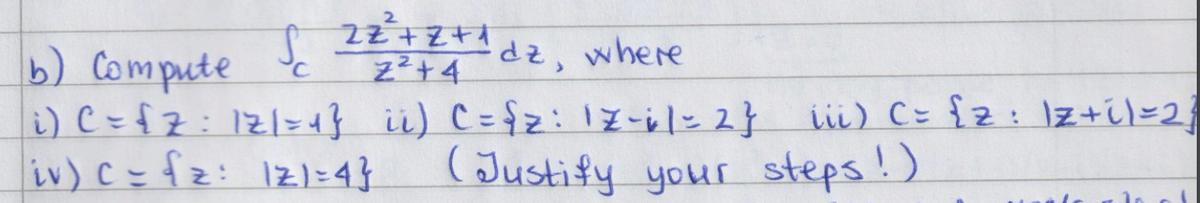 b) Compute ∫_C (2z²+z+1)/(z²+4) dz, where
i) C = {z : |z|=1} ii) C = {z : |z-i|=2} iii) C = {z : |z+i|=2}
iv) C = {z : |z|=4} (Justify your steps!)